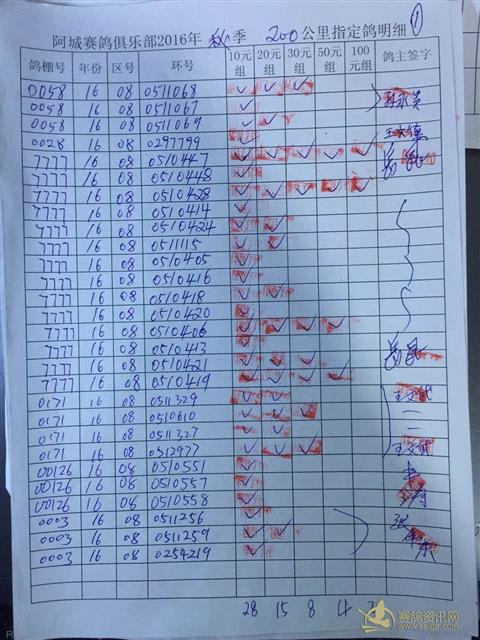 阿城赛鸽俱乐部2016年 秋 季 200 公里指定鸽明细 ①
鸽棚号 年份 区号 环号 10元组 20元组 30元组 50元组 100元组 鸽主签字
0058 16 08 0511068 ✓ ✓ ✓
0058 16 08 0511067 ✓
0058 16 08 0511069 ✓ ✓
0028 16 08 0297799 ✓
7777 16 08 0510447 ✓ ✓ ✓ ✓ ✓
7777 16 08 0510448 ✓
7777 16 08 0510428 ✓ ✓ ✓ ✓ ✓
7777 16 08 0510414 ✓
7777 16 08 0510424 ✓ ✓
7777 16 08 0511115 ✓ ✓
7777 16 08 0510405 ✓
7777 16 08 0510416 ✓
7777 16 08 0510418 ✓ ✓
7777 16 08 0510420 ✓
7777 16 08 0510406 ✓ ✓ ✓ ✓
7777 16 08 0510413 ✓
7777 16 08 0510421 ✓ ✓ ✓
7777 16 08 0510419 ✓ ✓ ✓ ✓
0171 16 08 0511329 ✓ ✓
0171 16 08 0510610 ✓ ✓ ✓
0171 16 08 0511327 ✓ ✓
0171 16 08 0312977 ✓ ✓ ✓
00126 16 08 0510551 ✓
00126 16 08 0510557 ✓
00126 16 08 0510558 ✓
0003 16 08 0511256 ✓
0003 16 08 0511259 ✓ ✓
0003 16 08 0254219 ✓
28 15 8 4
赛鸽资讯网